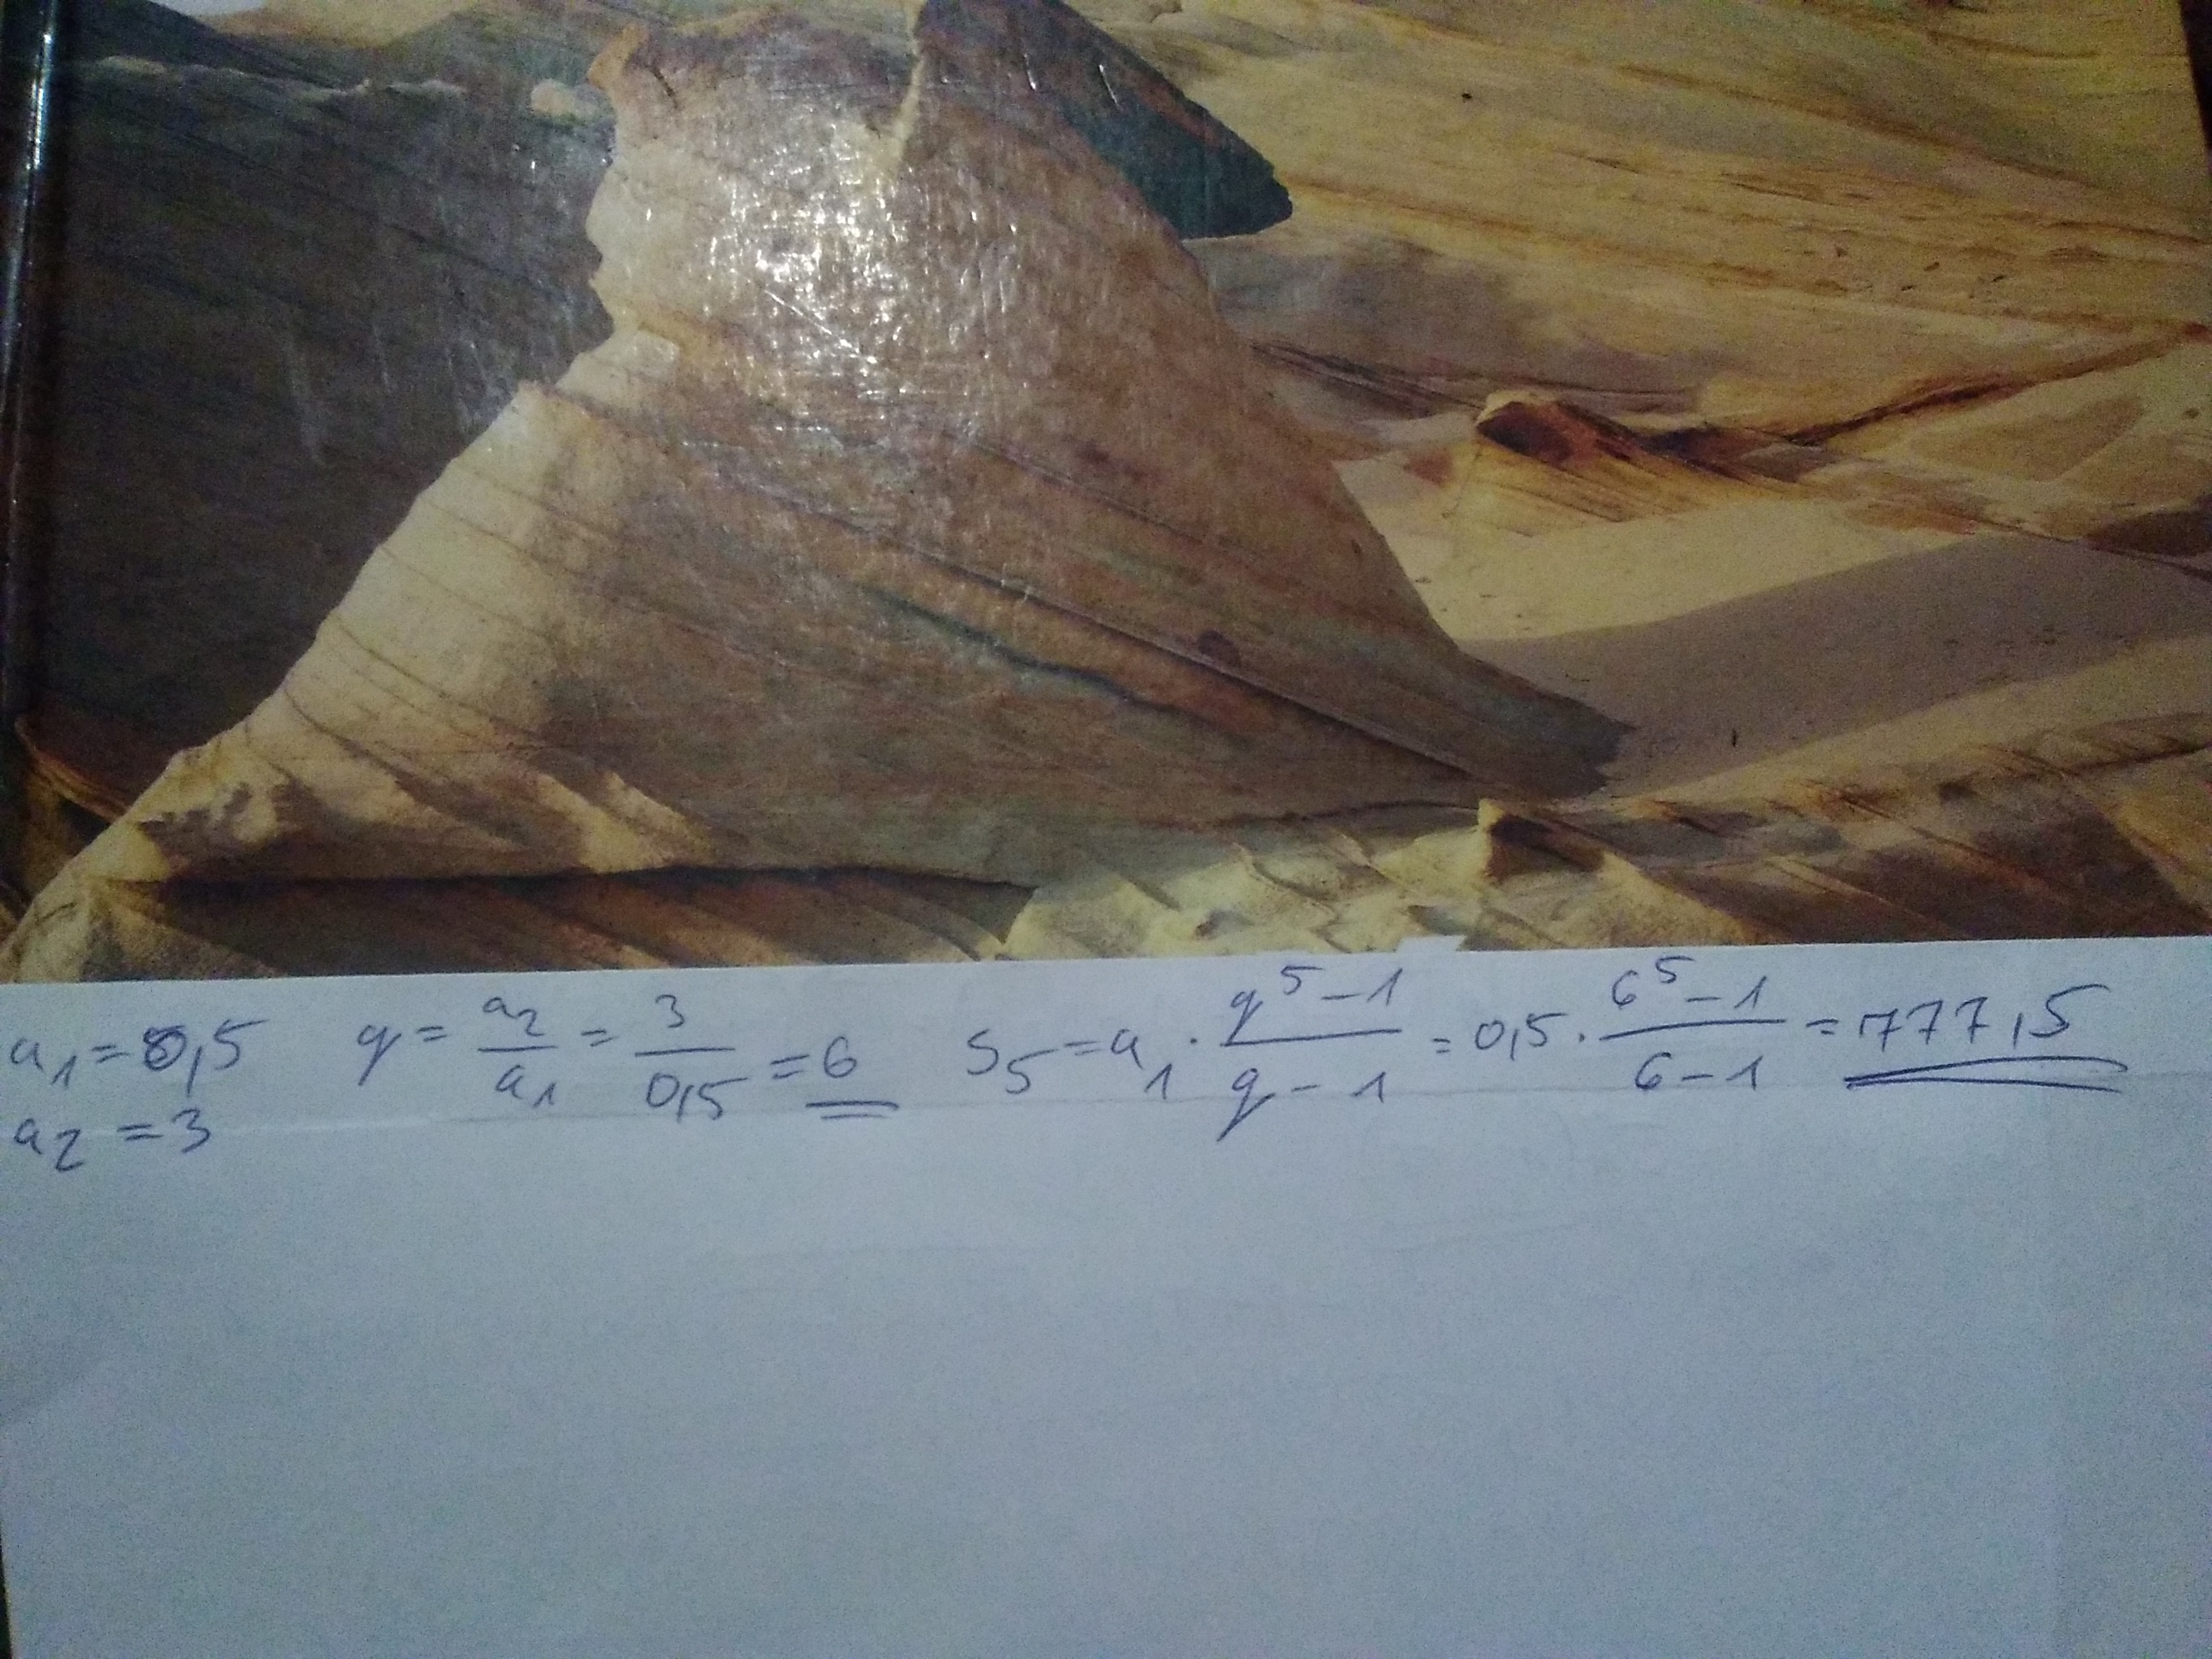 a₁=0,5 q = a₂/a₁ = 3/0,5 = 6 s₅ = a₁ · (q⁵-1)/(q-1) = 0,5 · (6⁵-1)/(6-1) = 777,5
a₂ = 3